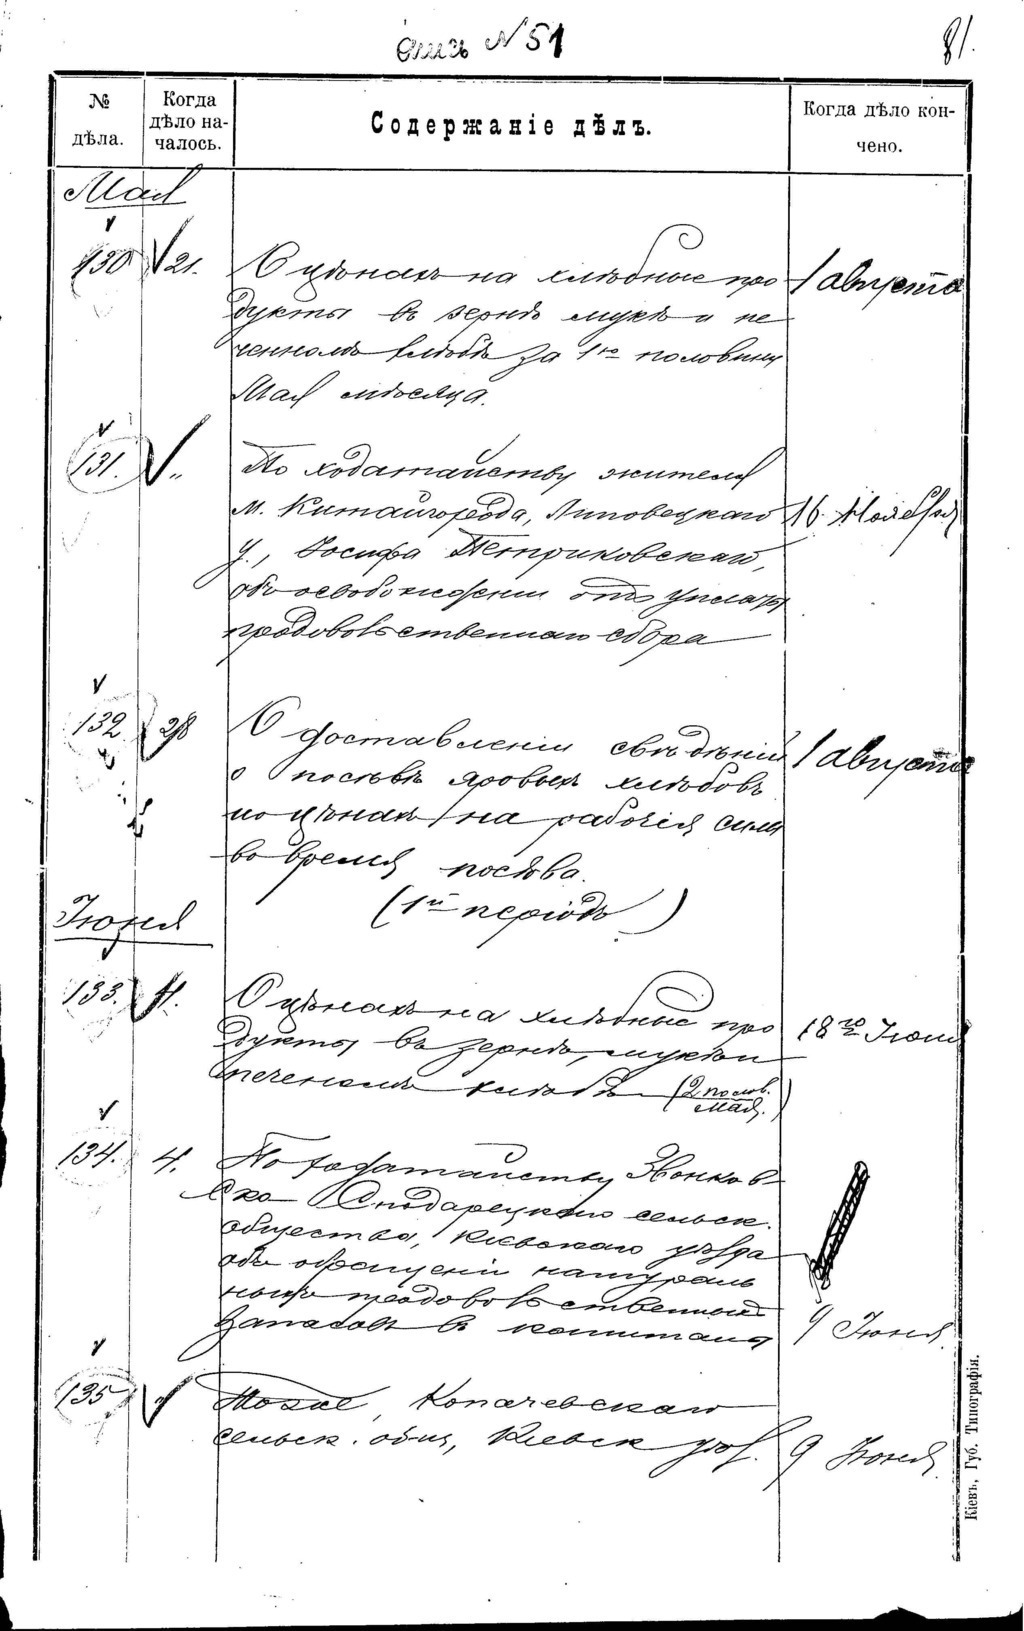 опись № 51
81.
№ дѣла.
Когда дѣло началось.
Содержаніе дѣлъ.
Когда дѣло кончено.
Мая
130 21. О цѣнахъ на хлѣбные про- 1 августа
дукты въ зернѣ мукѣ и пе
ченномъ хлѣбѣ за 1ю половину
Мая мѣсяца.
131. " По ходатайству жителя
м. Китайгорода, Липовецкаго 16 Ноября
у., Іосифа Петриковскаго,
объ освобожденіи отъ уплаты
продовольственнаго сбора
132 28 О доставленіи свѣдѣній 1 августа
о посѣвѣ яровыхъ хлѣбовъ
и о цѣнахъ на рабочія силы
во время посѣва.
(1й періодъ)
Іюня
133. 4. О цѣнахъ на хлѣбные про 18го Іюня
дукты въ зернѣ, мукѣ и
печеномъ хлѣбѣ (2 полов.
Мая.)
134. 4. По ходатайству Звонков
ско Сподарецкаго сельск.
общества, Кіевскаго уѣзда
объ обращеніи натураль
ныхъ продовольственныхъ
запасовъ въ капиталъ 9 Іюня.
135 " Тоже Копачевскаго
сельск. общ, Кіевск уѣз. 9 Іюня.
Кіевъ, Губ. Типографія.